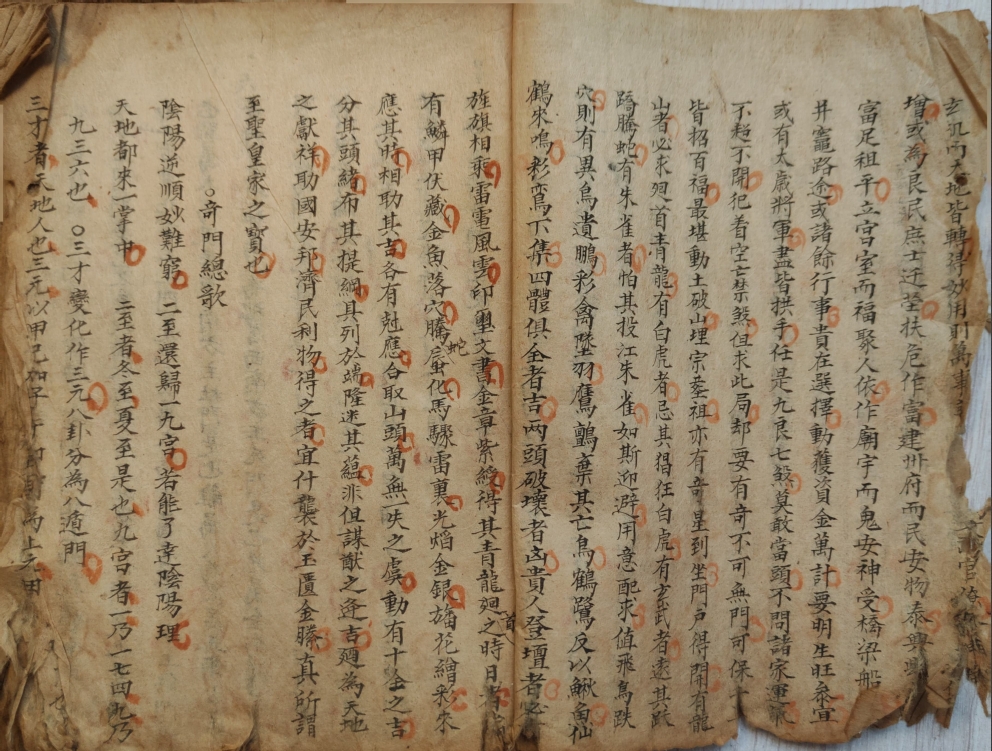 玄机而天地皆轉得妙用則萬事
增或為良民庶士迁茔扶危作富建州府而民安物泰興
富足祖平立宮室而福聚人依作廟宇而鬼安神受橋梁船
井竈路途或諸餘行事貴在選擇動獲資金萬計要明生旺叅宣
或有太歲將軍盡皆拱手任是九良七煞莫敢當頭不問諸家運
不超不開祀着空亡禁煞但求此局却要有奇不可無門可保十
皆招百福最堪動土破山埋宗塟祖亦有奇星到坐門户得開有龍
山者必求廻首青龍有白虎者忌其猖狂白虎有玄武者遠其跃
躋騰蛇有朱雀者怕其投江朱雀如斯迎避用意配求值飛鳥跌
穴則有異鳥遺鵬彩禽墜羽鷹鸇棄其亡鳥鶴鷺反以鰍魚仙
鶴來鳴彩鸞下集四體俱全者吉两頭破壞者凶貴人登壇者必
旌旗相乘雷電風雲印璽文書金章紫綬得其青龍廻首之時日者
有鱗甲伏藏金魚落穴騰蛇蜃化馬驟雷裏光焰金銀旛花繒彩朱
應其時相助其吉各有尅應合取山頭萬無一失之虞動有十全之吉
分其頭緒布其提綱具列於端隆迷其蘊非但謀猷之逢吉廼為天地
之獻祥助國安邦濟民利物得之者宜什襲於玉匱金縢真所謂
至聖皇家之寶也
○奇門總歌
陰陽逆順妙難窮 二至還歸一九宮 若能了達陰陽理
天地都來一掌中 二至者冬至夏至是也九宮者一乃一七四九乃
九三六也 ○三才變化作三元八卦分為八遁門
三才者天地人也三元以甲己加子午 為上元甲